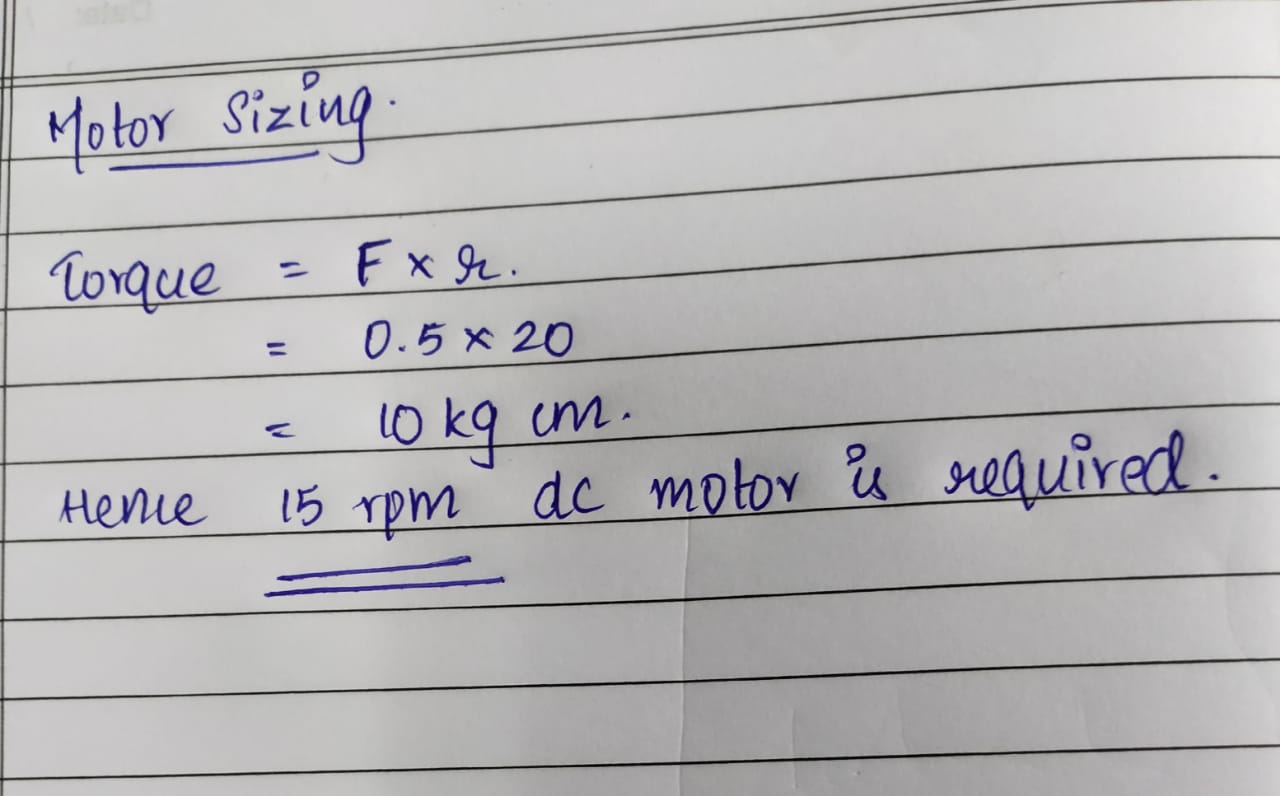 Motor Sizing.
Torque = F × r.
= 0.5 × 20
= 10 kg cm.
Hence 15 rpm dc motor is required.